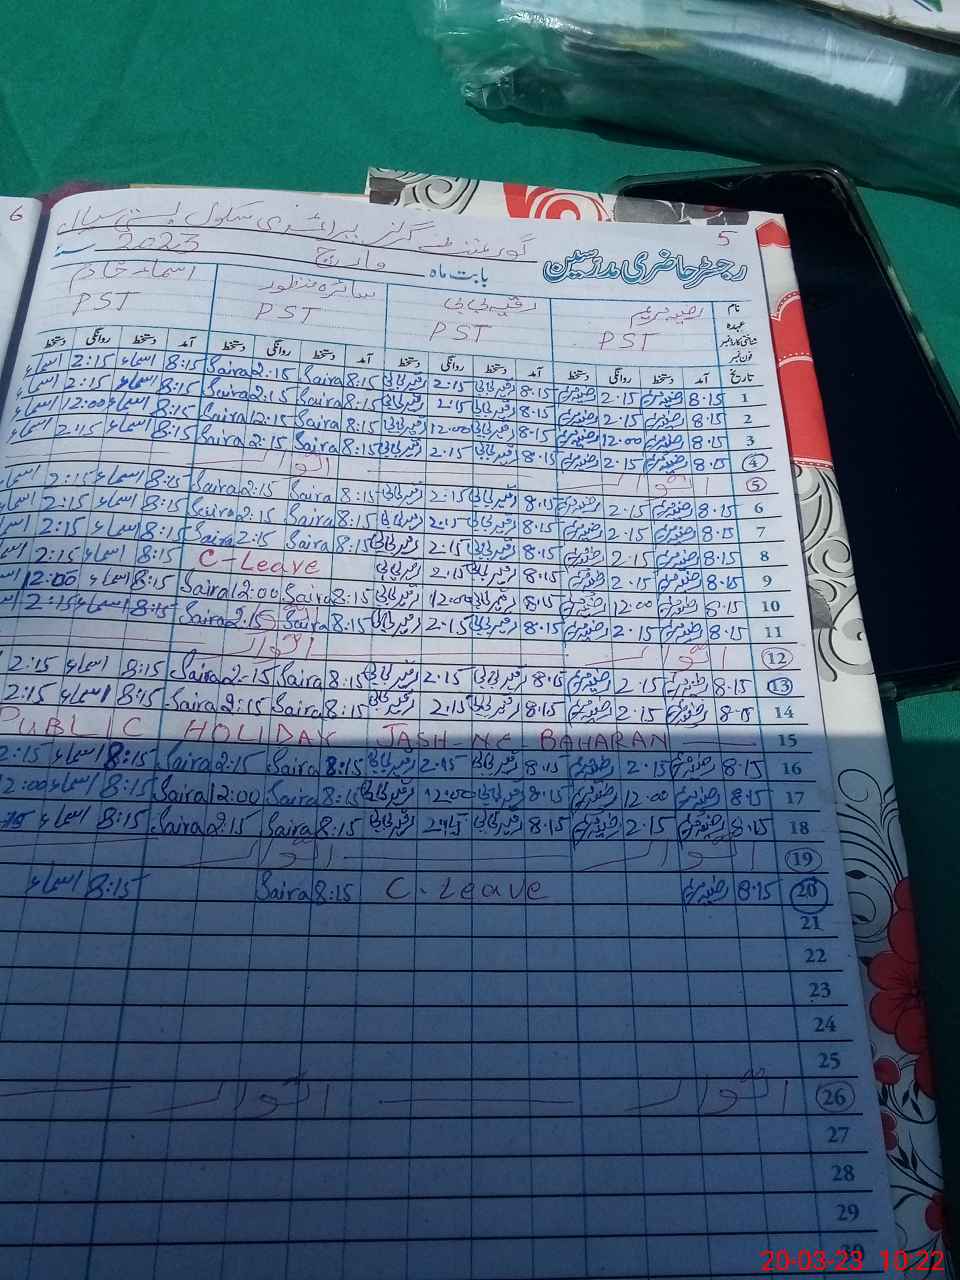 6
5
گورنمنٹ گرلز پرائمری سکول بستی سیال
رجسٹر حاضری مدرسین بابت ماہ مارچ 2023 سنہ
نام رضیہ مریم رقیہ بی بی سائرہ منظور اسماء خادم
عہدہ PST PST PST PST
شناختی کارڈ نمبر
فون نمبر
تاریخ آمد دستخط روانگی دستخط آمد دستخط روانگی دستخط آمد دستخط روانگی دستخط آمد دستخط روانگی دستخط
1 8:15 2:15 8:15 رقیہ بی بی 2:15 رقیہ بی بی 8:15 Saira 2:15 Saira 8:15 اسماء 2:15 اسماء
2 8:15 2:15 8:15 رقیہ بی بی 2:15 رقیہ بی بی 8:15 Saira 2:15 Saira 8:15 اسماء 2:15 اسماء
3 8:15 12:00 8:15 رقیہ بی بی 12:00 رقیہ بی بی 8:15 Saira 12:15 Saira 8:15 اسماء 12:00 اسماء
4 8:15 2:15 8:15 رقیہ بی بی 2:15 رقیہ بی بی 8:15 Saira 2:15 Saira 8:15 اسماء 2:15 اسماء
5 اتوار اتوار
6 8:15 2:15 8:15 رقیہ بی بی 2:15 رقیہ بی بی 8:15 Saira 2:15 Saira 8:15 اسماء 2:15
7 8:15 2:15 8:15 رقیہ بی بی 2:15 رقیہ بی بی 8:15 Saira 2:15 Saira 8:15 اسماء 2:15
8 8:15 2:15 8:15 رقیہ بی بی 2:15 رقیہ بی بی 8:15 Saira 2:15 Saira 8:15 اسماء 2:15
9 8:15 2:15 8:15 رقیہ بی بی 2:15 رقیہ بی بی C-Leave 8:15 اسماء 2:15
10 8:15 12:00 8:15 رقیہ بی بی 12:00 رقیہ بی بی 8:15 Saira 12:00 Saira 8:15 اسماء 12:00
11 8:15 2:15 8:15 رقیہ بی بی 2:15 رقیہ بی بی 8:15 Saira 2:15 Saira 8:15 اسماء 2:15
12 اتوار اتوار
13 8:15 2:15 8:15 رقیہ بی بی 2:15 رقیہ بی بی 8:15 Saira 2:15 Saira 8:15 اسماء 2:15
14 8:15 2:15 8:15 رقیہ بی بی 2:15 رقیہ بی بی 8:15 Saira 2:15 Saira 8:15 اسماء 2:15
15 PUBLIC HOLIDAY JASH-NE-BAHARAN
16 8:15 2:15 8:15 رقیہ بی بی 2:15 رقیہ بی بی 8:15 Saira 2:15 Saira 8:15 اسماء 2:15
17 8:15 12:00 8:15 رقیہ بی بی 12:00 رقیہ بی بی 8:15 Saira 12:00 Saira 8:15 اسماء 12:00
18 8:15 2:15 8:15 رقیہ بی بی 2:15 رقیہ بی بی 8:15 Saira 2:15 Saira 8:15 اسماء
19 اتوار اتوار
20 8:15 C-Leave 8:15 Saira 8:15 اسماء
21
22
23
24
25
26 اتوار اتوار
27
28
29
30
20-03-23 10:22